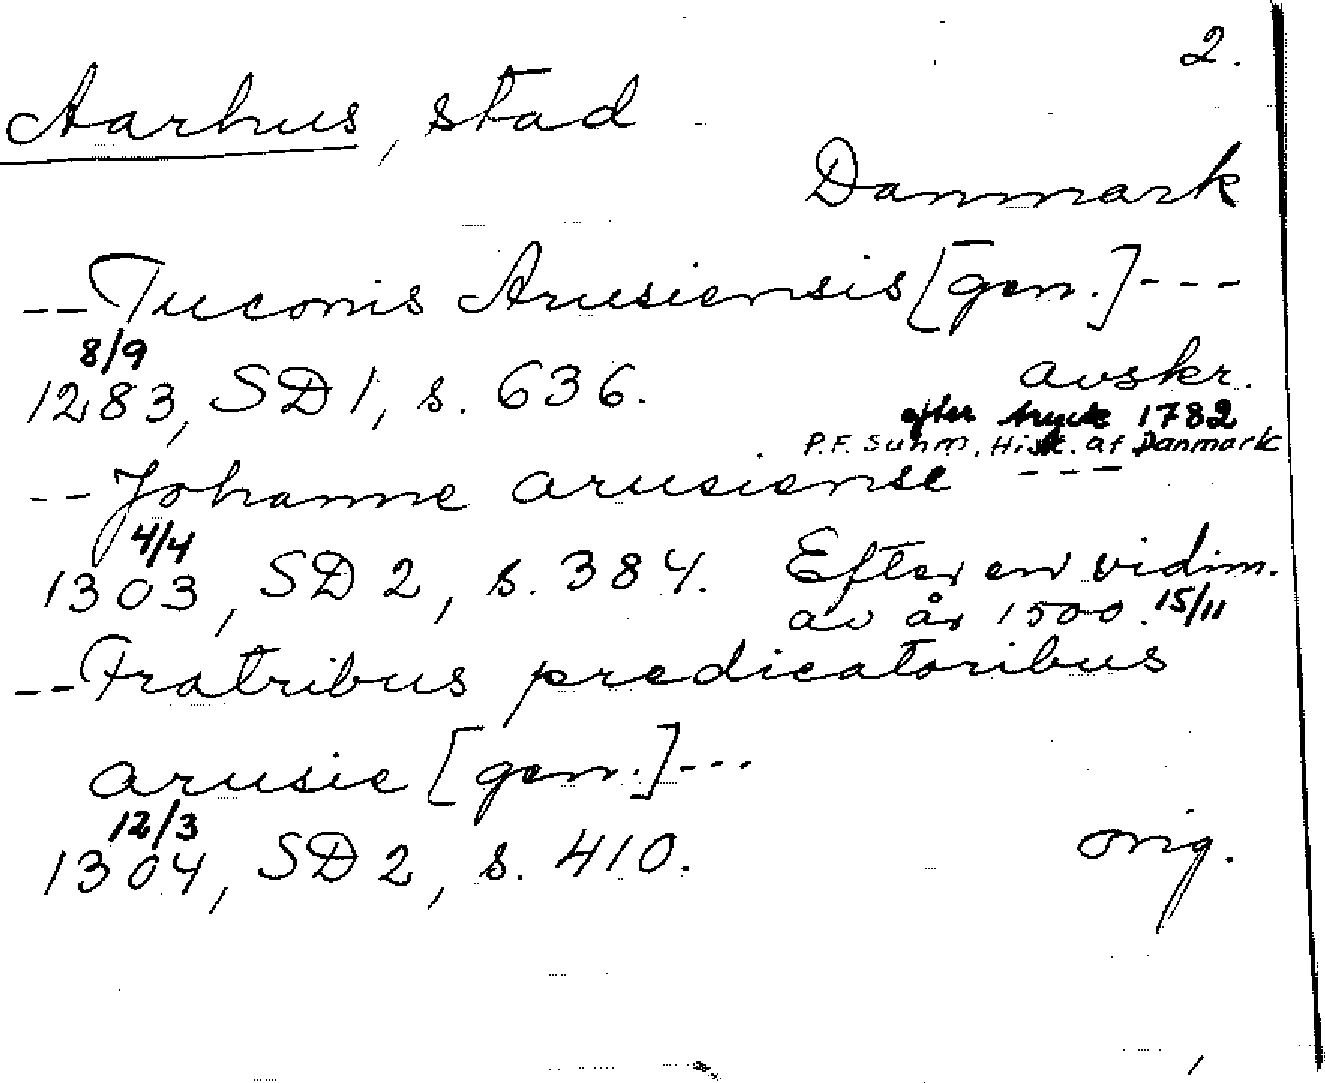 2.
Aarhus, stad
Danmark
-- Tuconis Arusiensis [gen.] ---
8/9
1283, SD 1, s. 636. avskr.
efter tryck 1782
P.F. Suhm, Hist. af Danmark
-- Johanne arusiense ---
4/4
1303, SD 2, s. 384. Efter en vidim.
av år 1500. 15/11
-- Fratribus predicatoribus
arusie [gen.] ---
12/3
1304, SD 2, s. 410. orig.